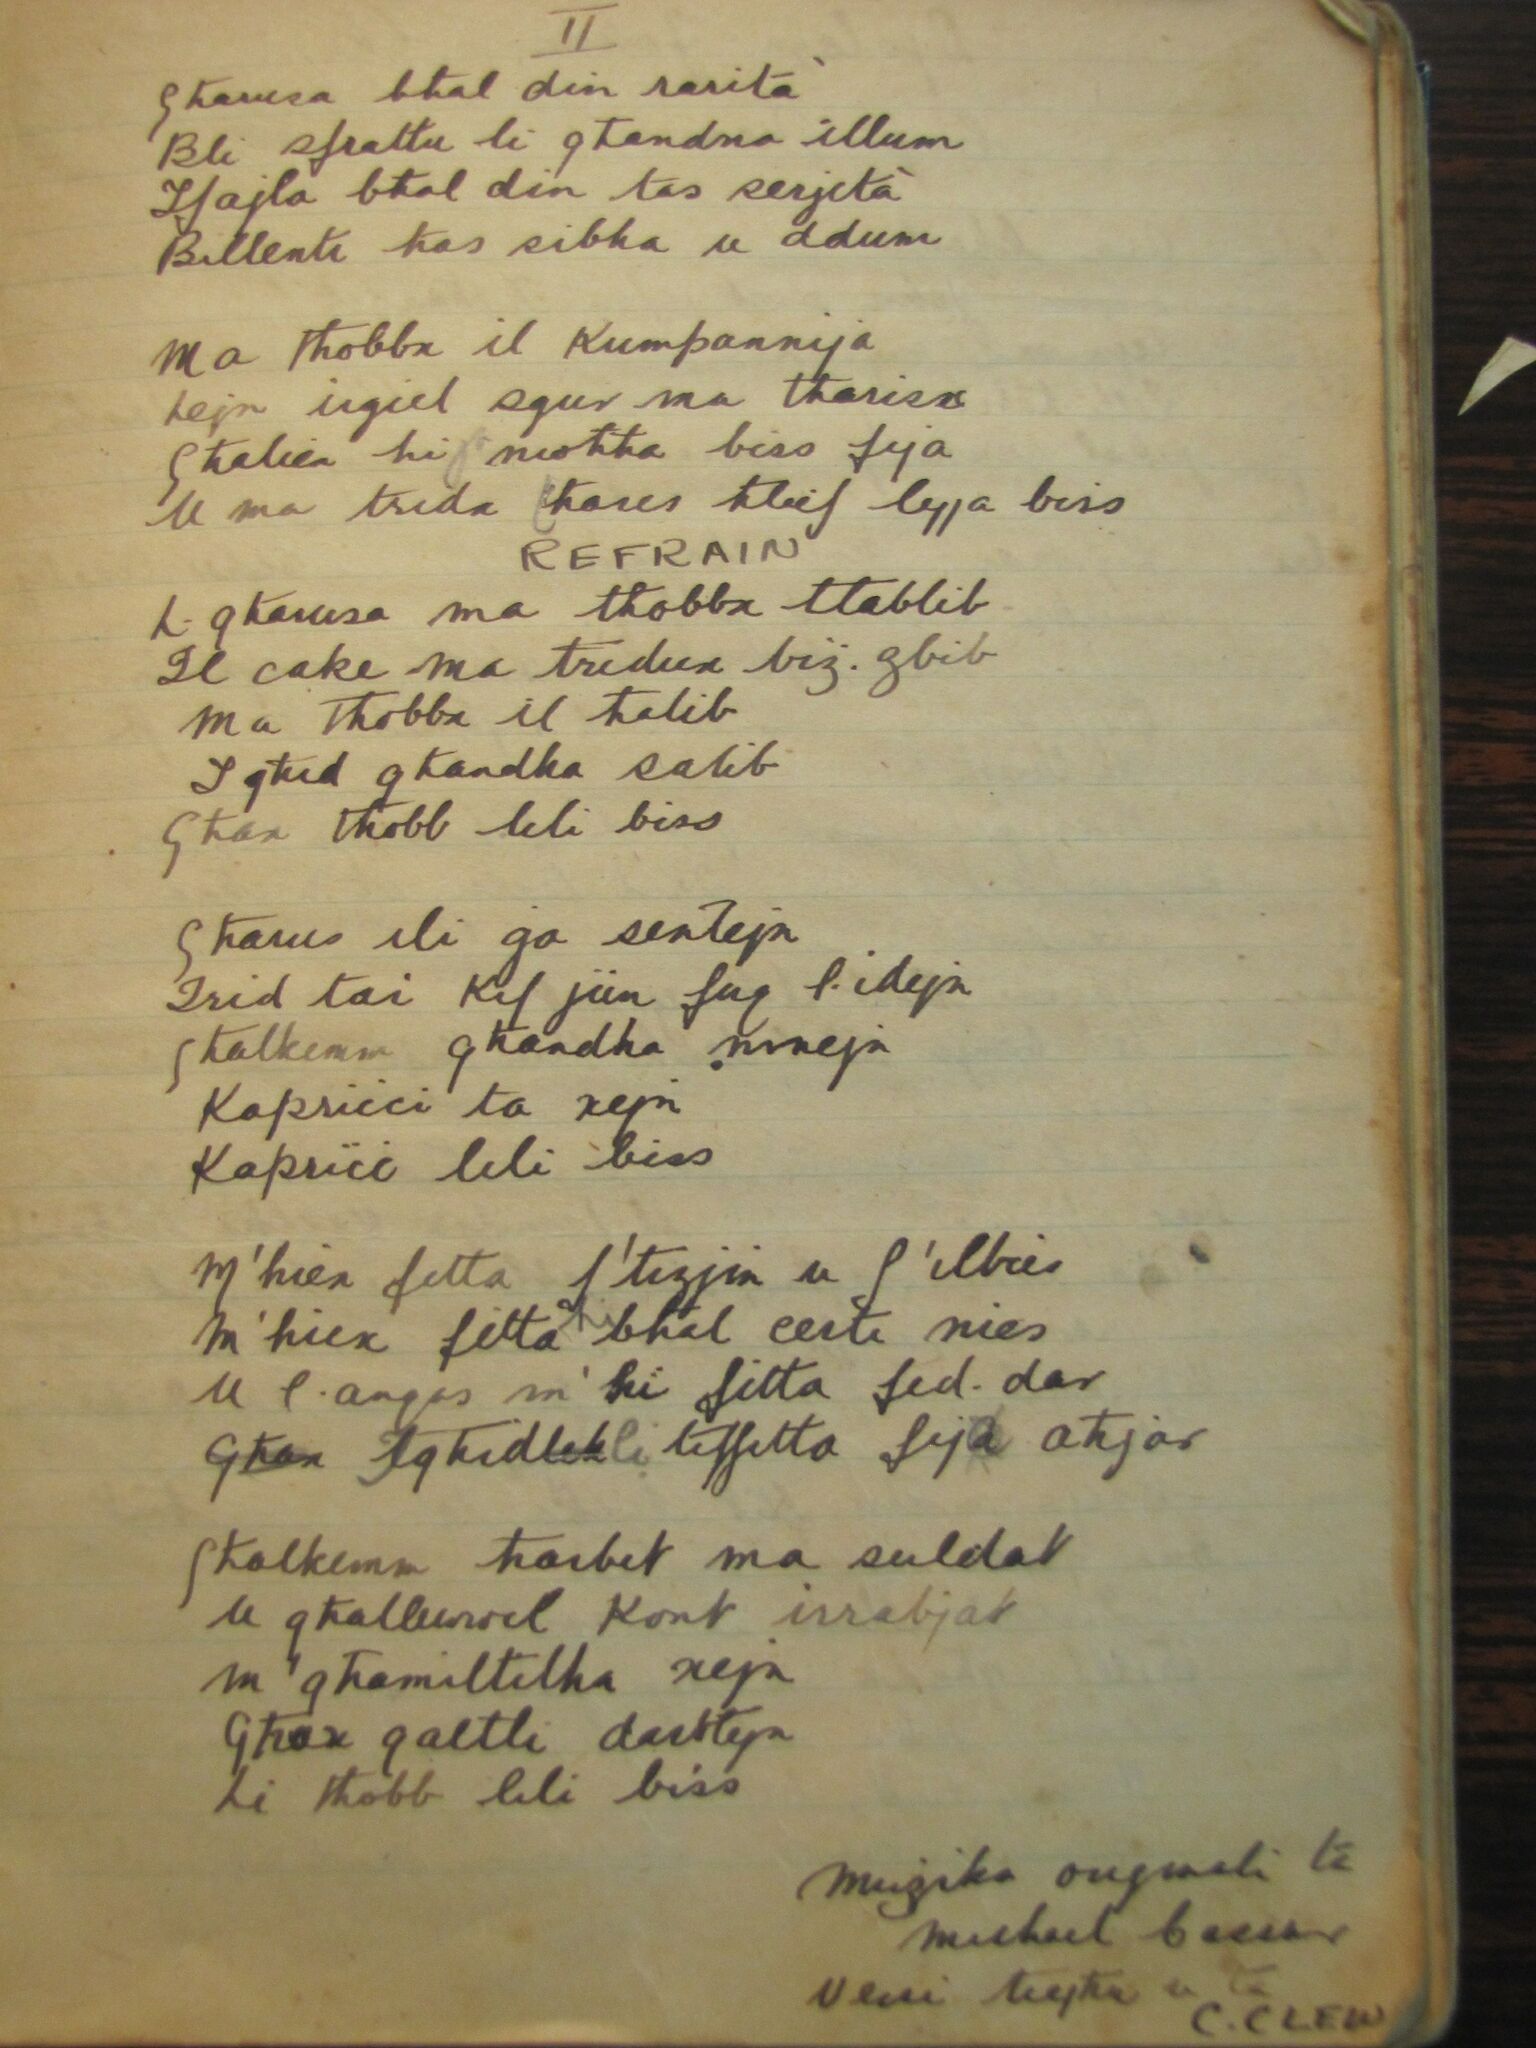 II
Għarusa bħal din rarità
Bli sfrattu li għandna illum
Tfajla bħal din tas serjetà
Billenti ħas sibha u ddum
Ma tħobbx il Kumpannija
Lejn irgiel sgur ma tħarisx
Għaliex hi moħħa biss fija
U ma tridx tħares ħlief lejja biss
REFRAIN
L-għarusa ma tħobbx ttablib
Il cake ma tridux biż-żbib
Ma tħobbx il ħalib
Tgħid għandha salib
Għax tħobb lili biss
Għarus ili ġa sentejn
Trid tai Kif jiin fuq l-idejn
Għalkemm għandha mnejn
Kapriċċi ta xejn
Kapriċċ lili biss
M'hiex fitta f'tiżjin u f'ilbies
M'hiex fitta hi bħal certi nies
U l-anqas m'hi fitta fid-dar
Għax Tgħidlek li tiffitta fija aħjar
Għalkemm ħarbet ma suldat
U għalluwwel Kont irrabjat
M'għamiltilha xejn
Għax qaltli darbtejn
Li tħobb lili biss
Mużika original ta
Michael Cassar
Versi tiegħu u ta
C. CLEW